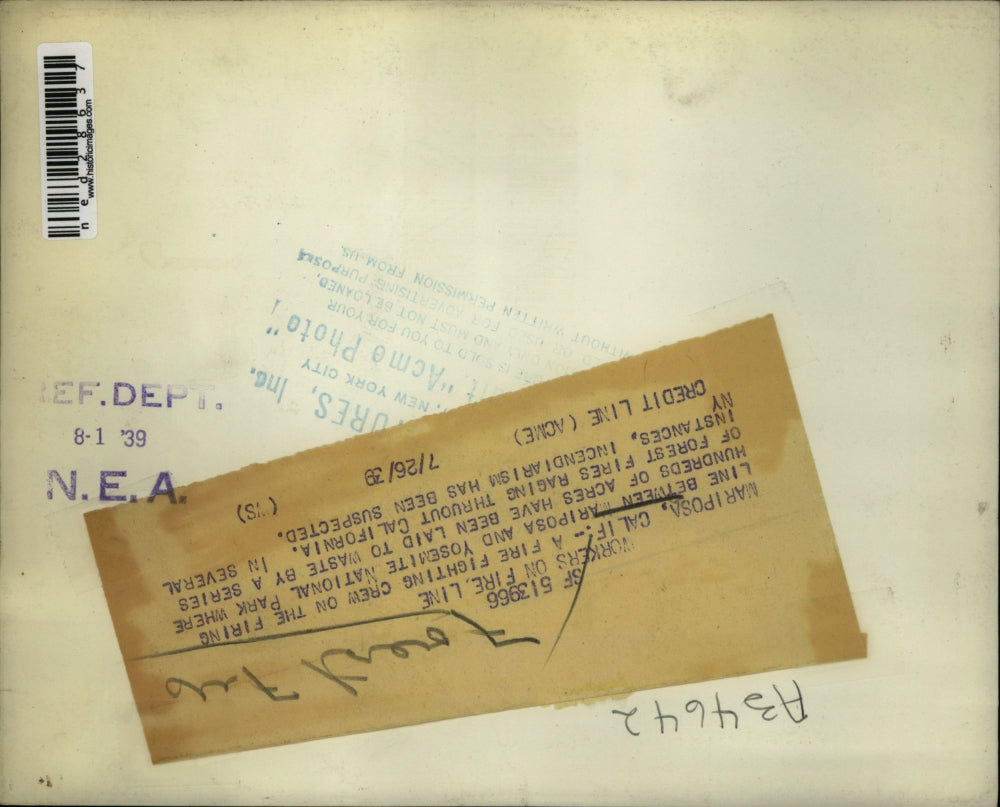 ned28637
www.historicimages.com
REF. DEPT.
8-1 '39
N. E. A.
A34642
Forest
SF 513966
WORKERS ON FIRE LINE
MARIPOSA, CALIF.-- A FIRE FIGHTING CREW ON THE FIRING
LINE BETWEEN MARIPOSA AND YOSEMITE NATIONAL PARK WHERE
HUNDREDS OF ACRES HAVE BEEN LAID TO WASTE BY A SERIES
OF FOREST FIRES RAGING THRUOUT CALIFORNIA. IN SEVERAL
INSTANCES, INCENDIARISM HAS BEEN SUSPECTED.
NY
CREDIT LINE (ACME) 7/26/39 (WS)
URES, Inc.
NEW YORK CITY
"Acme Photo"
IS SOLD TO YOU FOR YOUR
ONLY AND MUST NOT BE LOANED,
OR USED FOR ADVERTISING PURPOSES
WITHOUT WRITTEN PERMISSION FROM US.